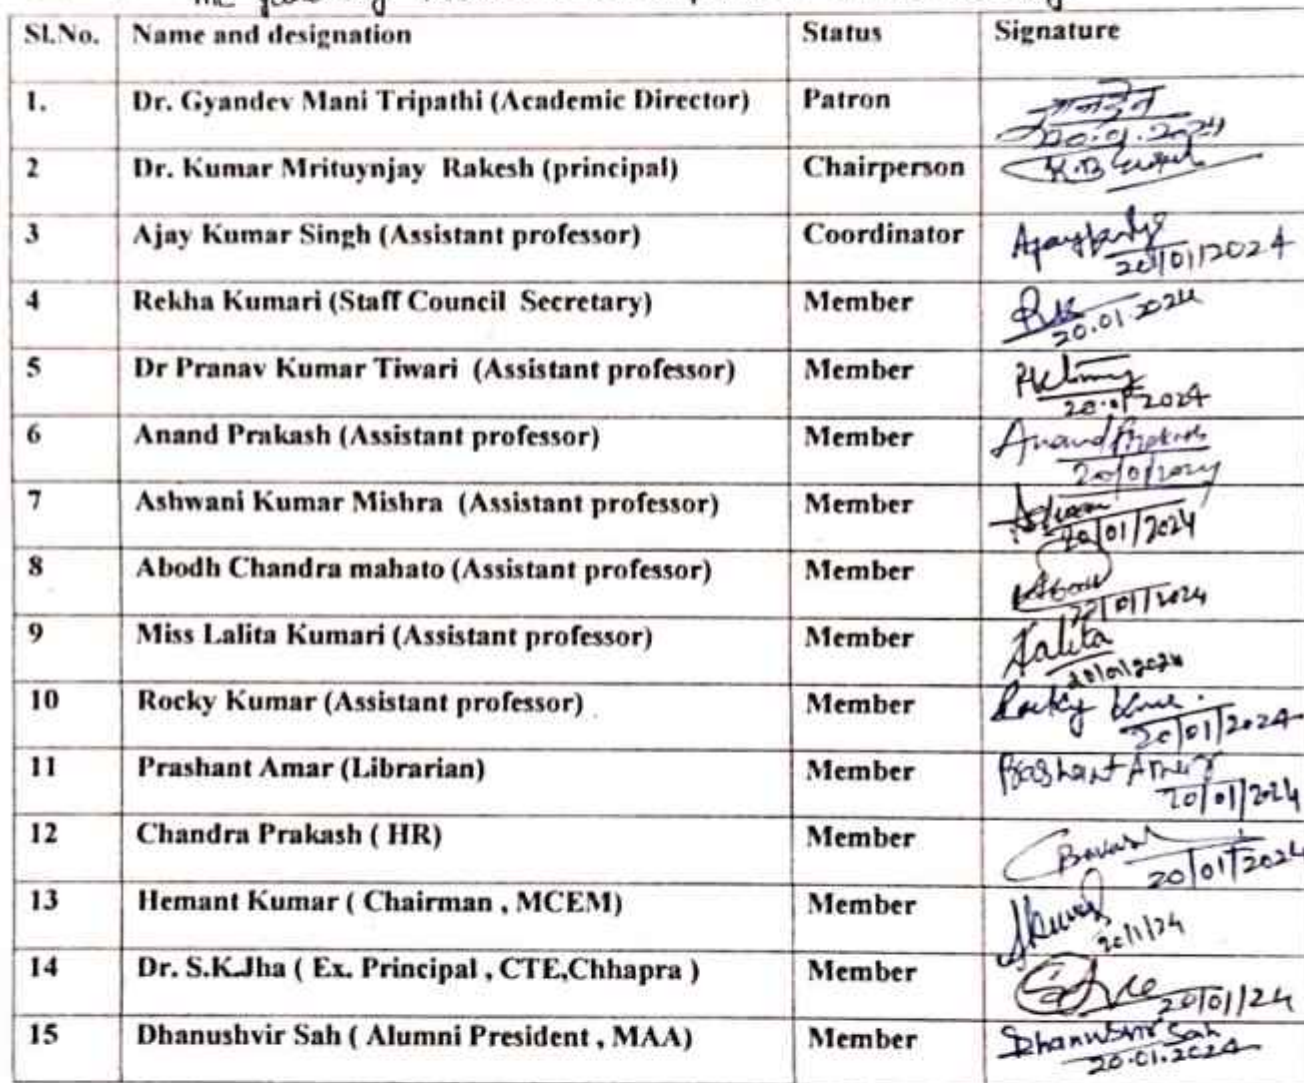 Sl.No. Name and designation Status Signature
1. Dr. Gyandev Mani Tripathi (Academic Director) Patron ज्ञानदेव
20.01.2024
2 Dr. Kumar Mrituynjay Rakesh (principal) Chairperson
3 Ajay Kumar Singh (Assistant professor) Coordinator
20/01/2024
4 Rekha Kumari (Staff Council Secretary) Member
20.01.2024
5 Dr Pranav Kumar Tiwari (Assistant professor) Member
20.01.2024
6 Anand Prakash (Assistant professor) Member Anand Prakash
20/01/2024
7 Ashwani Kumar Mishra (Assistant professor) Member
20/01/2024
8 Abodh Chandra mahato (Assistant professor) Member
9 Miss Lalita Kumari (Assistant professor) Member Lalita
20/01/2024
10 Rocky Kumar (Assistant professor) Member Rocky
20/01/2024
11 Prashant Amar (Librarian) Member Prashant Amar
20/01/2024
12 Chandra Prakash ( HR) Member
20/01/2024
13 Hemant Kumar ( Chairman , MCEM) Member
20/1/24
14 Dr. S.K.Jha ( Ex. Principal , CTE,Chhapra ) Member
20/01/24
15 Dhanushvir Sah ( Alumni President , MAA) Member Dhanushvir Sah
20.01.2024